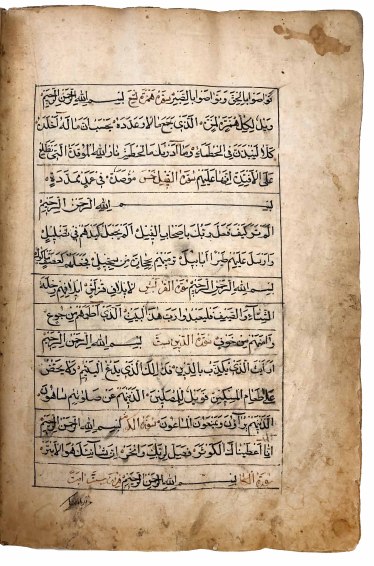 تواصوا بالحق وتواصوا بالصبر سورة همزة تسع بسم الله الرحمن الرحيم
ويل لكل همزة لمزة الذي جمع مالا وعدده يحسب ان ماله اخلده
كلا لينبذن في الحطمة وما ادريك ما الحطمة نار الله الموقدة التي تطلع
على الافئدة انها عليهم سورة الفيل خمس موصدة في عمد ممددة
بسم الله الرحمن الرحيم
الم تر كيف فعل ربك باصحاب الفيل الم يجعل كيدهم في تضليل
وارسل عليهم طيرا ابابيل ترميهم بحجارة من سجيل فجعلهم كعصف ماكول
بسم الله الرحمن الرحيم سورة القريش لايلاف قريش ايلافهم رحلة
الشتاء والصيف فليعبدوا رب هذا البيت الذي اطعمهم من جوع
وامنهم من خوف سورة الدين ست بسم الله الرحمن الرحيم
ارايت الذي يكذب بالدين فذلك الذي يدع اليتيم ولا يحض
على طعام المسكين فويل للمصلين الذين هم عن صلوتهم ساهون
الذين هم يراؤن ويمنعون الماعون سورة بسم الله الرحمن الرحيم
انا اعطيناك الكوثر فصل لربك وانحر ان شانئك هو الابتر
سورة بسم الله الرحمن الرحيم ست